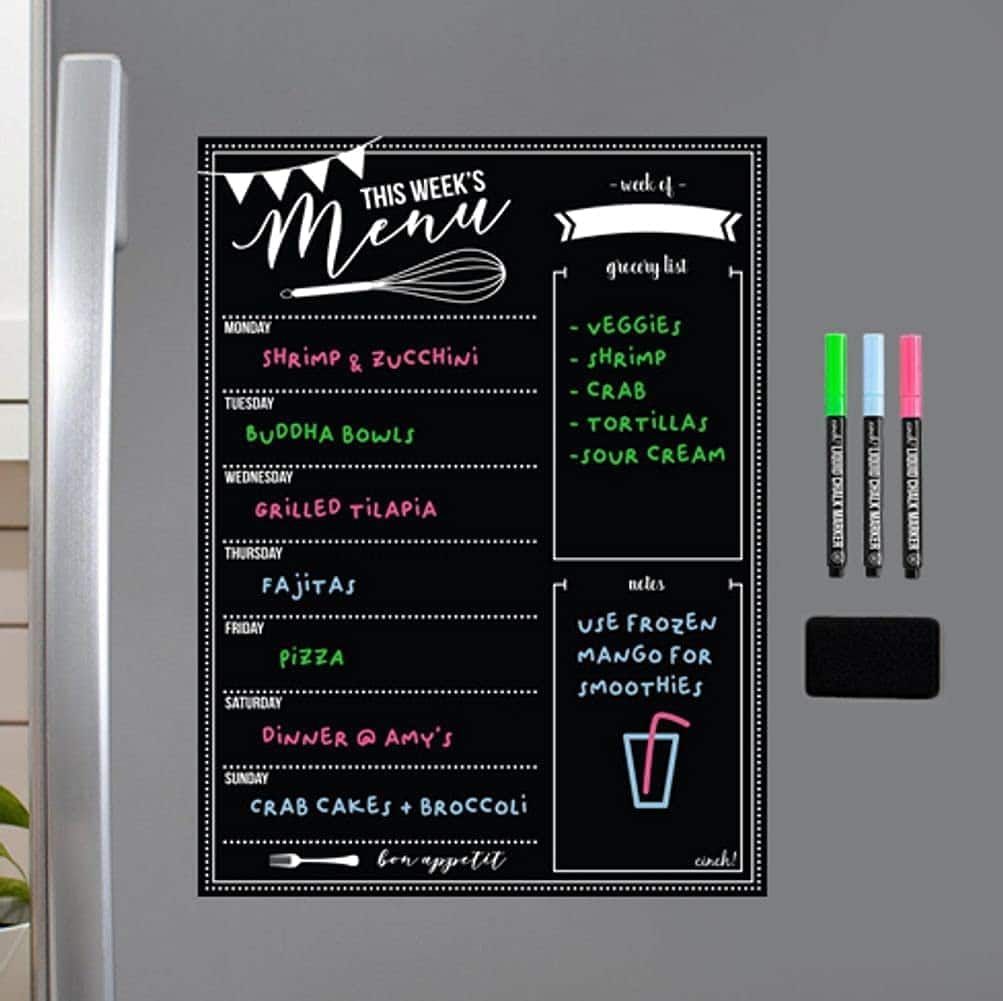 THIS WEEK'S
Menu
MONDAY
SHRiMP & ZUCCHiNi
TUESDAY
BUDDHA BOWLS
WEDNESDAY
GRiLLED TiLAPiA
THURSDAY
FAJiTAS
FRIDAY
PiZZA
SATURDAY
DiNNER @ AMY'S
SUNDAY
CRAB CAKES + BROCCOLi
bon appetit
- week of -
grocery list
- VEGGiES
- SHRiMP
- CRAB
- TORTiLLAS
-SOUR CREAM
notes
USE FROZEN
MANGO FOR
SMOOTHiES
cinch!
LIQUID CHALK MARKER
LIQUID CHALK MARKER
LIQUID CHALK MARKER